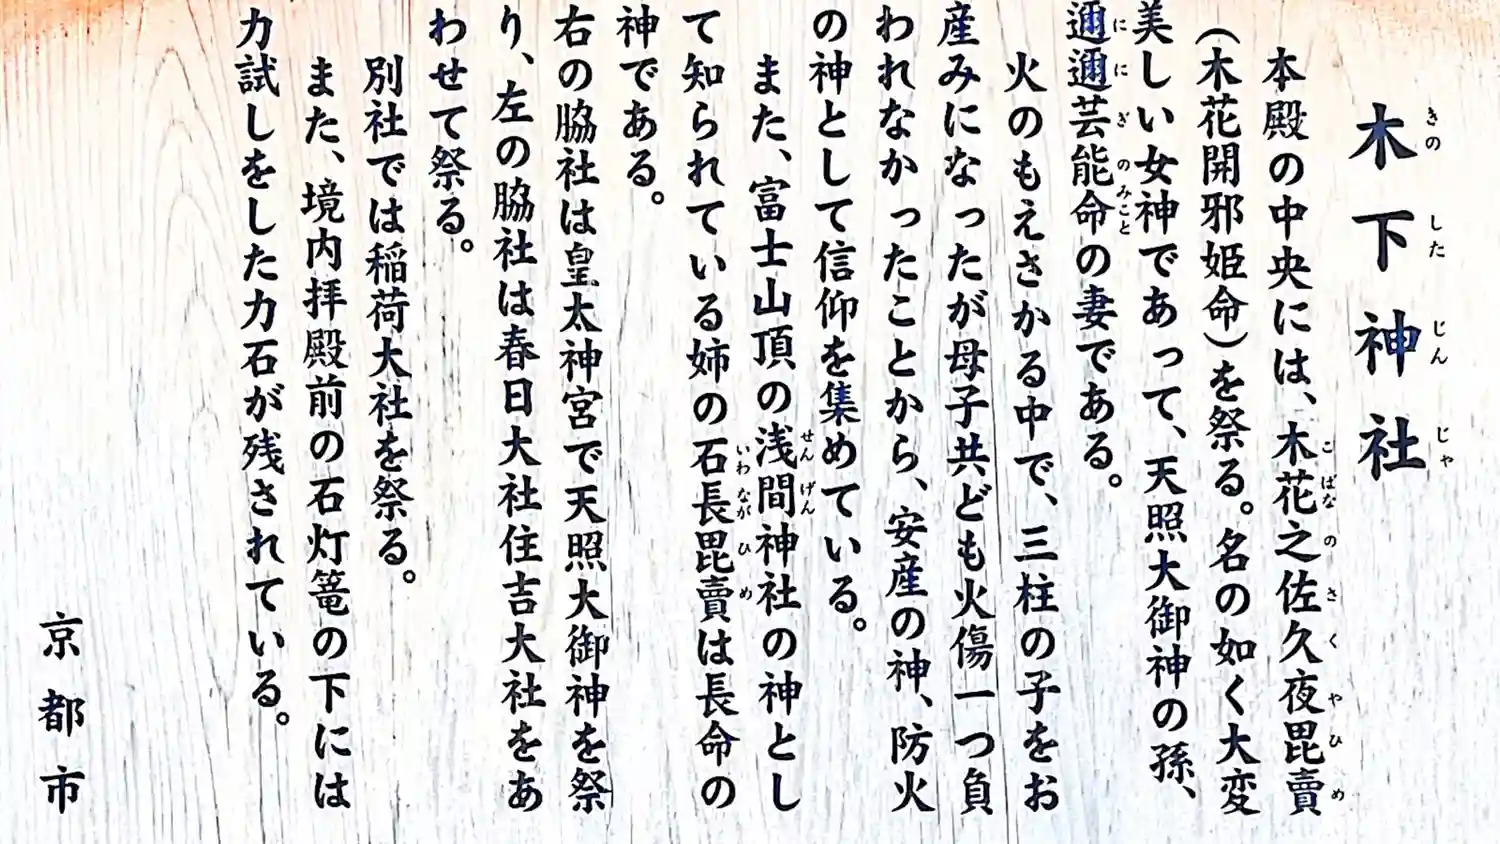 木下神社
きの した じん じゃ
本殿の中央には、木花之佐久夜毘賣
こ ばな の さ く や ひ め
(木花開邪姫命)を祭る。名の如く大変
美しい女神であって、天照大御神の孫、
邇邇芸能命の妻である。
に に ぎ のみこと
火のもえさかる中で、三柱の子をお
産みになったが母子共ども火傷一つ負
われなかったことから、安産の神、防火
の神として信仰を集めている。
また、富士山頂の浅間神社の神とし
せん げん
て知られている姉の石長毘賣は長命の
いわ なが ひ め
神である。
右の脇社は皇太神宮で天照大御神を祭
り、左の脇社は春日大社住吉大社をあ
わせて祭る。
別社では稲荷大社を祭る。
また、境内拝殿前の石灯篭の下には
力試しをした力石が残されている。
京都市